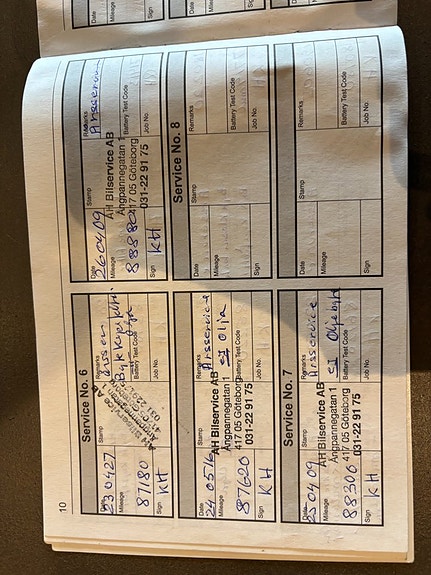 10
Service No. 6
Date
230427
Remarks
Mileage
87180
Battery Test Code
Sign
KH
Job No.
Date
240516
Stamp
AH Bilservice AB
Ängpannegatan 1
417 05 Göteborg
031-22 91 75
Remarks
Årsservice
Ej Olja
Mileage
87620
Battery Test Code
Sign
KH
Job No.
Service No. 7
Date
250409
Stamp
AH Bilservice AB
Ängpannegatan 1
417 05 Göteborg
031-22 91 75
Remarks
Årsservice
Ej Oljebyte
Mileage
88306
Battery Test Code
Sign
KH
Job No.
Date
260409
Stamp
AH Bilservice AB
Ängpannegatan 1
417 05 Göteborg
031-22 91 75
Remarks
Årsservice
Mileage
88880
Battery Test Code
Sign
KH
Job No.
Service No. 8
Date
Stamp
Remarks
Mileage
Battery Test Code
Sign
Job No.
Date
Stamp
Remarks
Mileage
Battery Test Code
Sign
Job No.